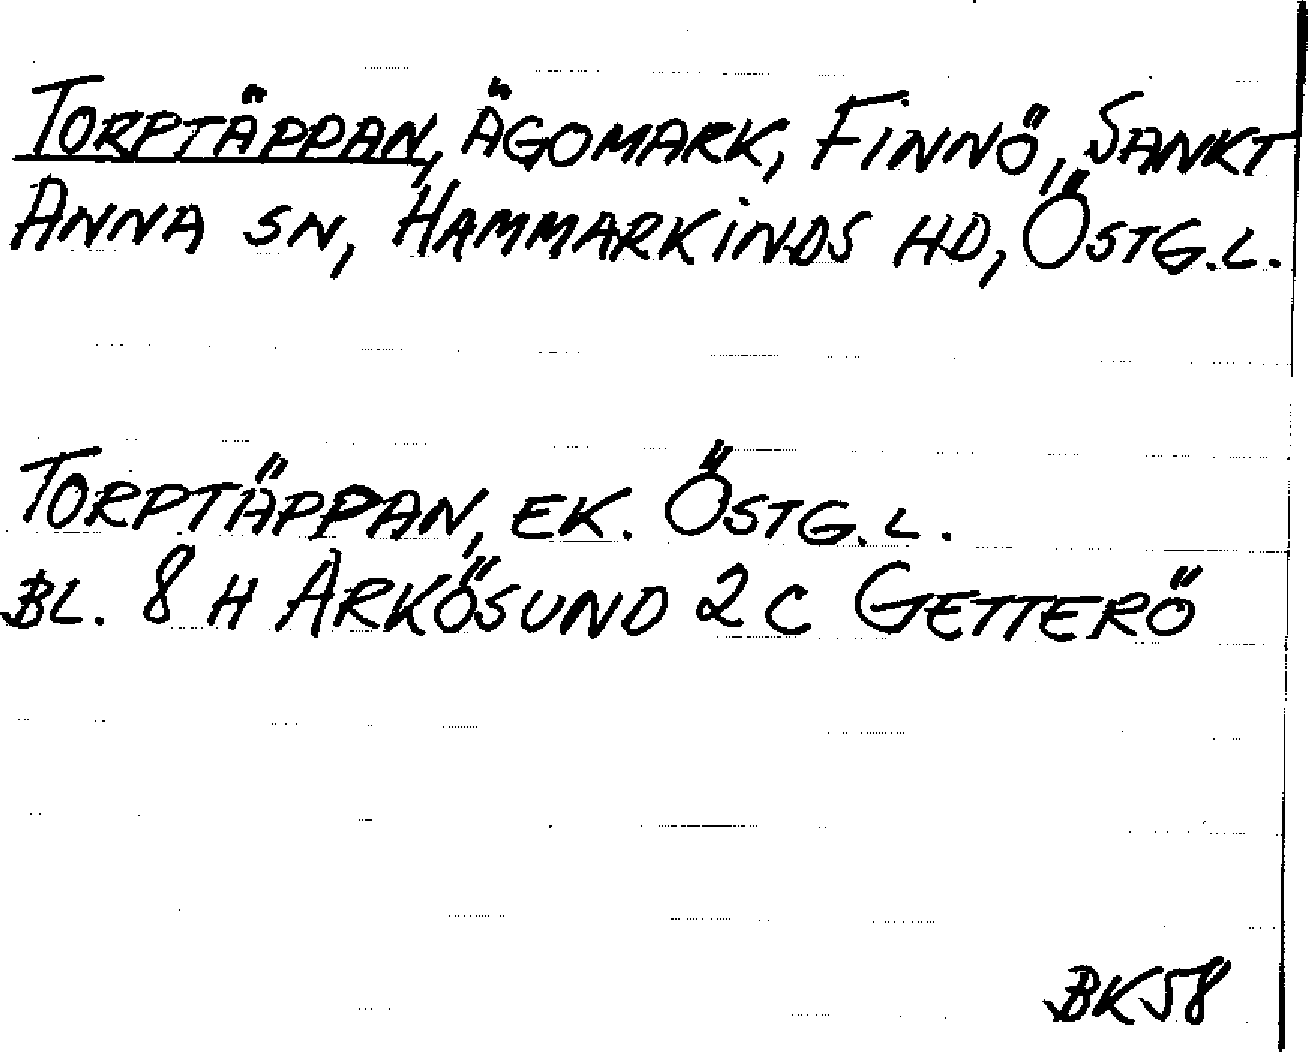 TORPTÄPPAN, ÄGOMARK, FINNÖ, SANKT
ANNA SN, HAMMARKINDS HD, ÖSTG.L.
TORPTÄPPAN, EK. ÖSTG.L.
BL. 8 H ARKÖSUND 2 C GETTERÖ
BK58